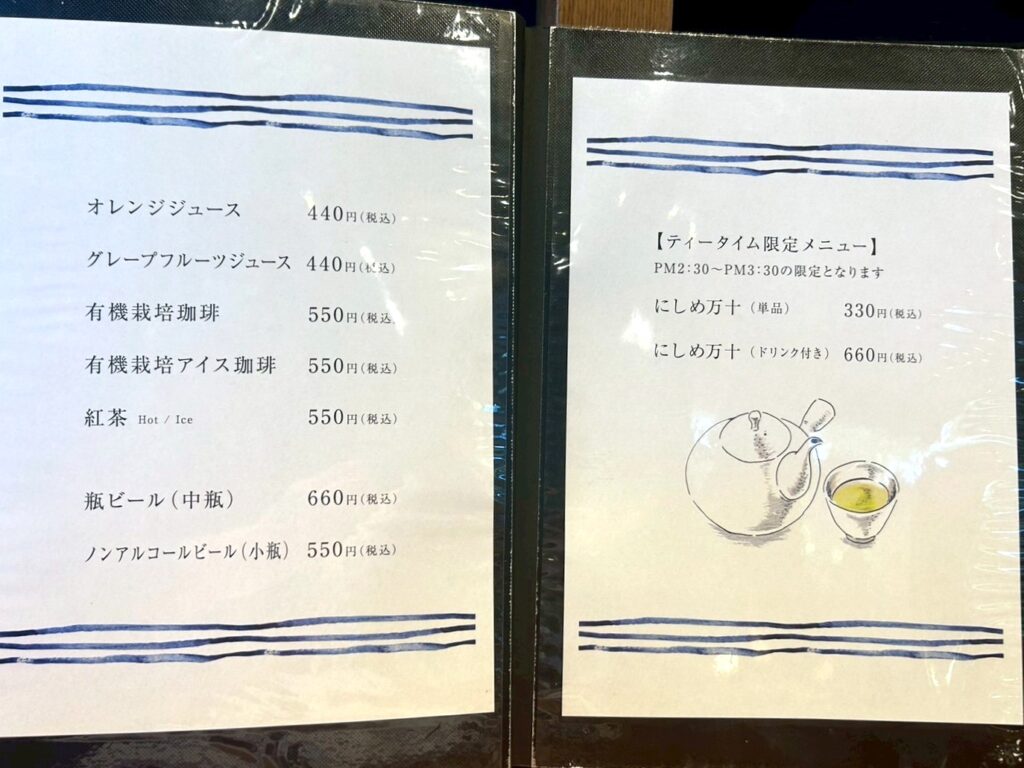 オレンジジュース 440円(税込)
グレープフルーツジュース 440円(税込)
有機栽培珈琲 550円(税込)
有機栽培アイス珈琲 550円(税込)
紅茶 Hot / Ice 550円(税込)
瓶ビール(中瓶) 660円(税込)
ノンアルコールビール(小瓶) 550円(税込)
【ティータイム限定メニュー】
PM2:30〜PM3:30の限定となります
にしめ万十(単品) 330円(税込)
にしめ万十(ドリンク付き) 660円(税込)